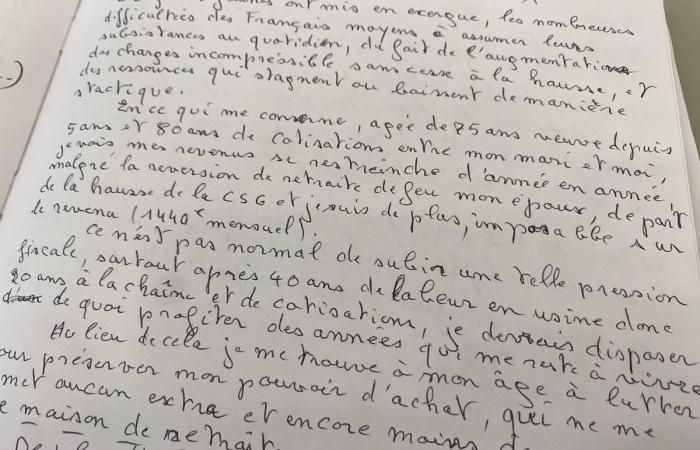 ont mis en exergue, les nombreuses
difficultés des Français moyens à assumer leurs
subsistances au quotidien, du fait de l'augmentation
des charges incompressible sans cesse à la hausse, et
des ressources qui stagnent ou baissent de manière
En ce qui me conserne, agée de 75 ans veuve depuis
5 ans et 80 ans de cotisations entre mon mari et moi,
je vois mes revenus se restreindre d'année en année,
malgré la reversion de retraite de feu mon époux, de part
de la hausse de la CSG et je suis de plus, imposable sur
le revenu (1440€ mensuel).
Ce n'est pas normal de subir une telle pression
fiscale, surtout après 40 ans de labeur en usine donc
20 ans à la chaîne et de cotisations, je devrais disposer
de quoi profiter des années qui me reste à vivre
Au lieu de cela je me trouve à mon âge à lutter
our préserver mon pouvoir d'achat, qui ne me
met aucun extra et encore moins
maison de